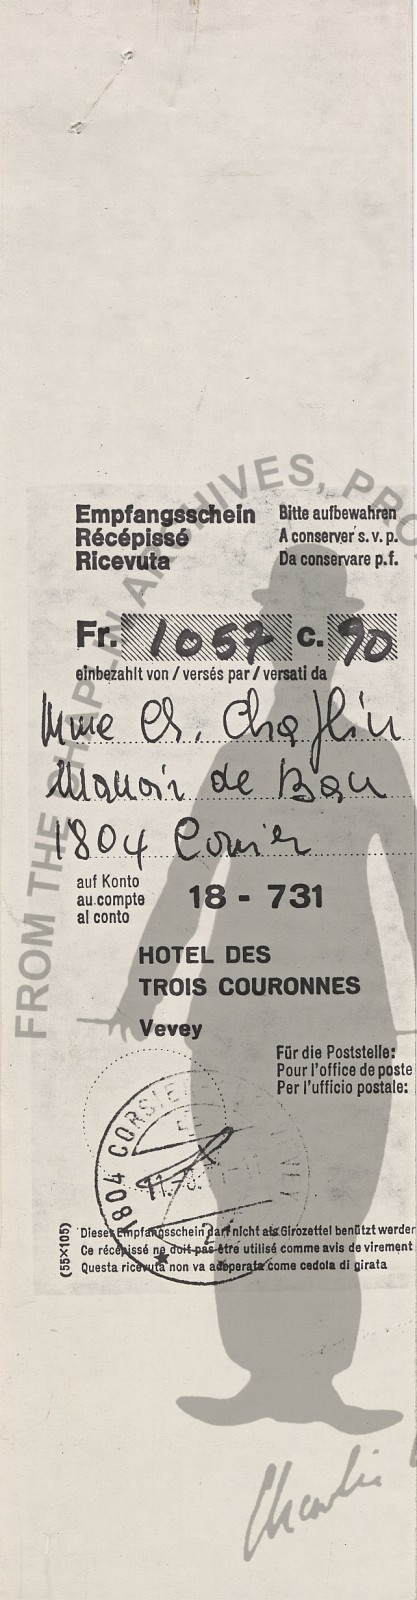 FROM THE CHAPLIN ARCHIVES, PRO
Empfangsschein
Récépissé
Ricevuta
Bitte aufbewahren
A conserver s. v. p.
Da conservare p.f.
Fr. 1057 c. 90
einbezahlt von / versés par / versati da
Mme Ch. Chaplin
Manoir de Ban
1804 Corsier
auf Konto
au compte
al conto
18 - 731
HOTEL DES
TROIS COURONNES
Vevey
Für die Poststelle:
Pour l'office de poste
Per l'ufficio postale:
1804 CORSIE
(55×105)
Dieser Empfangsschein darf nicht als Girozettel benützt werder
Ce récépissé ne doit pas être utilisé comme avis de virement
Questa ricevuta non va adoperata come cedola di girata
Charlie